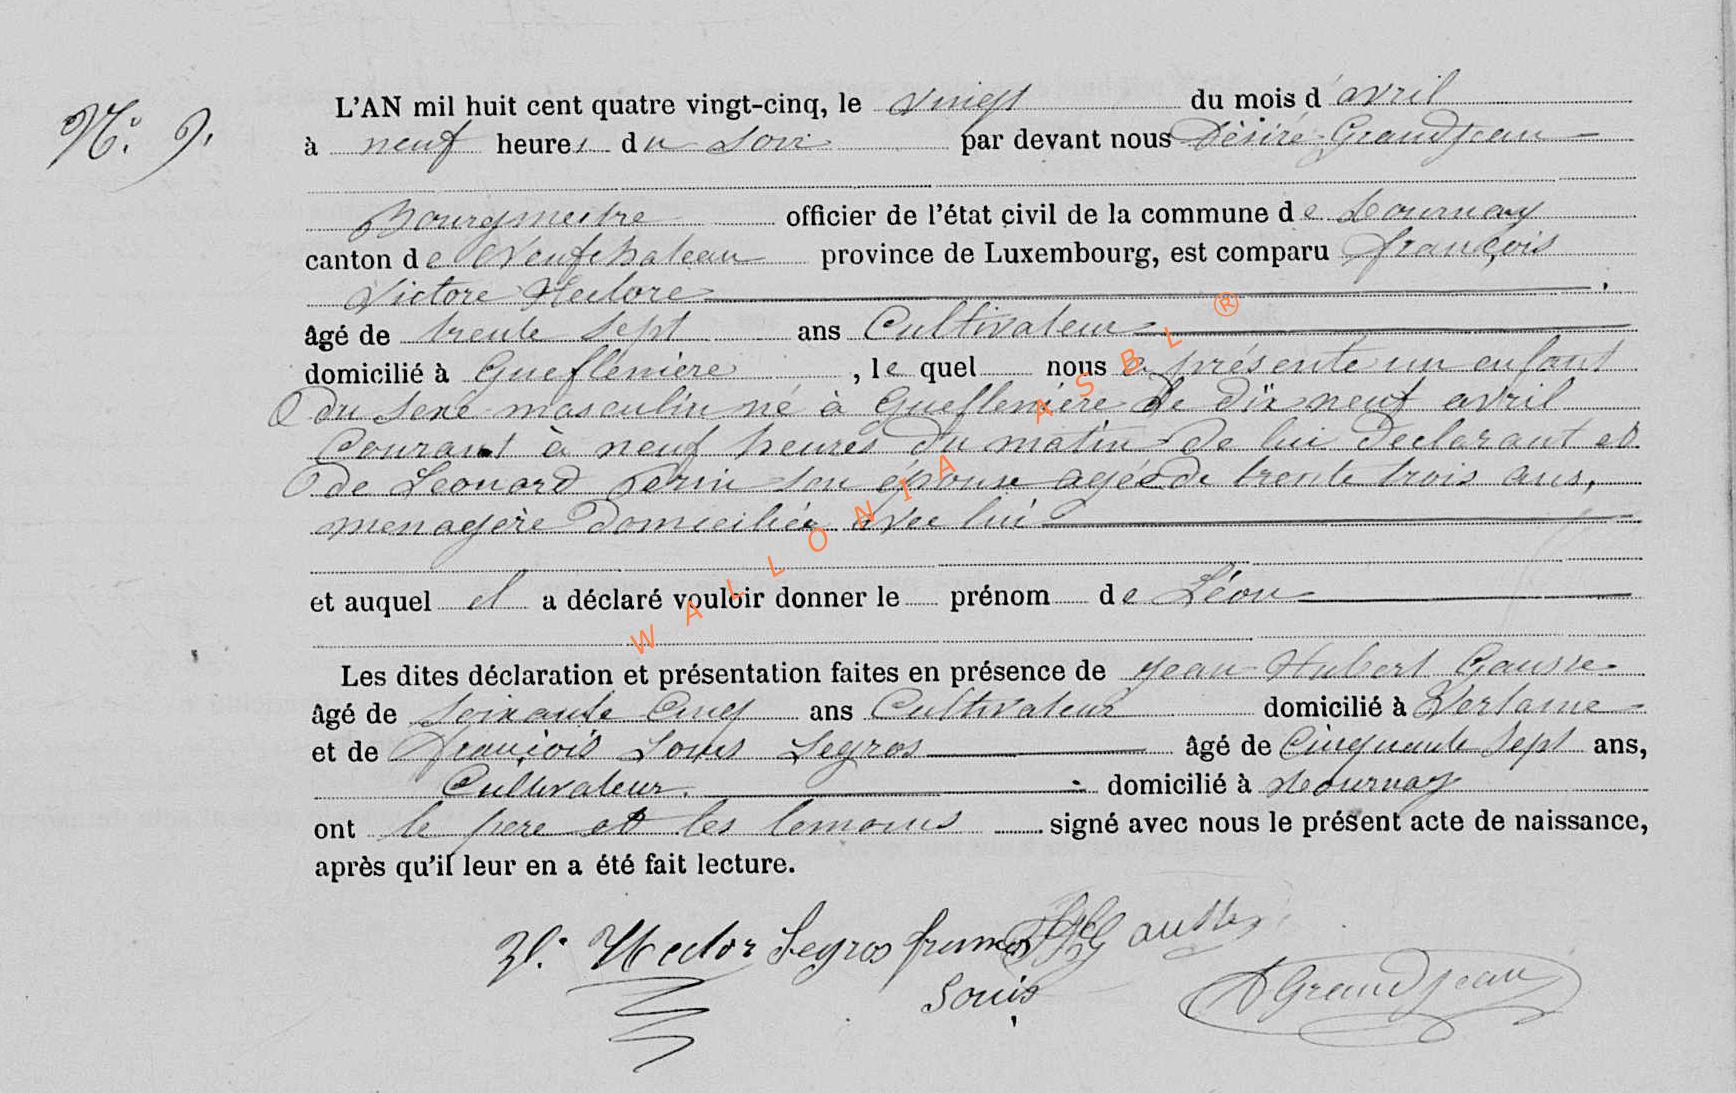 N.º 9.
L'AN mil huit cent quatre vingt-cinq, le vingt du mois d'avril
à neuf heures du soir par devant nous Désiré Grandjean
Bourgmestre officier de l'état civil de la commune de Tournay
canton de Neufchateau province de Luxembourg, est comparu françois
Victore Hectore
âgé de trente sept ans Cultivateur
domicilié à Gueflenière, le quel nous a présente un enfant
du sexe masculin né à Gueflenière le dix neuf avril
Courant à neuf heures du matin de lui declarant et
de Leonard Perin son épouse agée de trente trois ans,
menagère domiciliée avec lui
et auquel il a déclaré vouloir donner le prénom de Léon
Les dites déclaration et présentation faites en présence de jean Hubert Gausse
âgé de soixante Cinq ans Cultivateur domicilié à Verlaine
et de françois Louis Legros âgé de Cinquante sept ans,
Cultivateur. domicilié à Tournay
ont le pere et les temoins signé avec nous le présent acte de naissance,
après qu'il leur en a été fait lecture.
Hector Legros francois Gausse
Louis
D Grandjean
WALLONIA ASBL ®